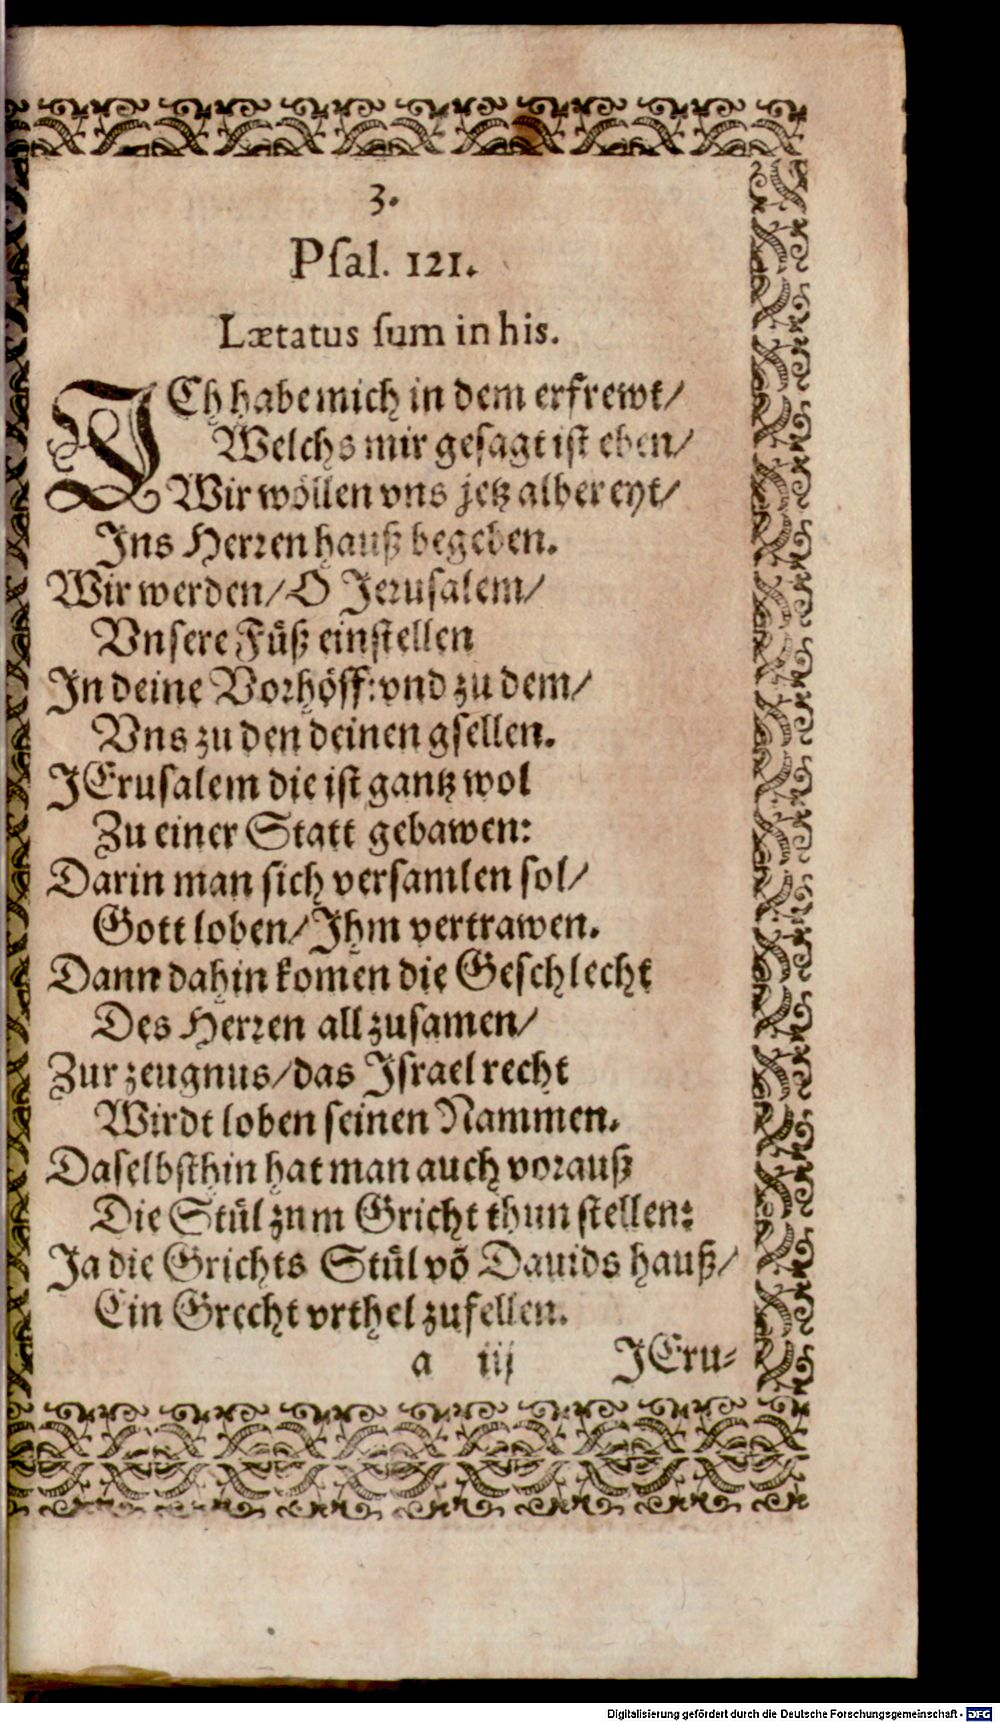 3.
Pſal. 121.
Lætatus ſum in his.
ICh habe mich in dem erfrewt/
Welchs mir geſagt iſt eben/
Wir wöllen vns jetz albereyt/
Ins Herren hauß begeben.
Wir werden/ O Jeruſalem/
Vnſere Füß einſtellen
In deine Vorhöff: vnd zu dem/
Vns zu den deinen gſellen.
JEruſalem die iſt gantz wol
Zu einer Statt gebawen:
Darin man ſich verſamlen ſol/
Gott loben/ Ihm vertrawen.
Dann dahin komen die Geſchlecht
Des Herren all zuſamen/
Zur zeugnus/ das Iſrael recht
Wirdt loben ſeinen Nammen.
Daſelbſthin hat man auch vorauß
Die Stül znm Gricht thun ſtellen:
Ja die Grichts Stül võ Dauids hauß/
Ein Grecht vrthel zufellen.
a iij JEru-
Digitalisierung gefördert durch die Deutsche Forschungsgemeinschaft - DFG